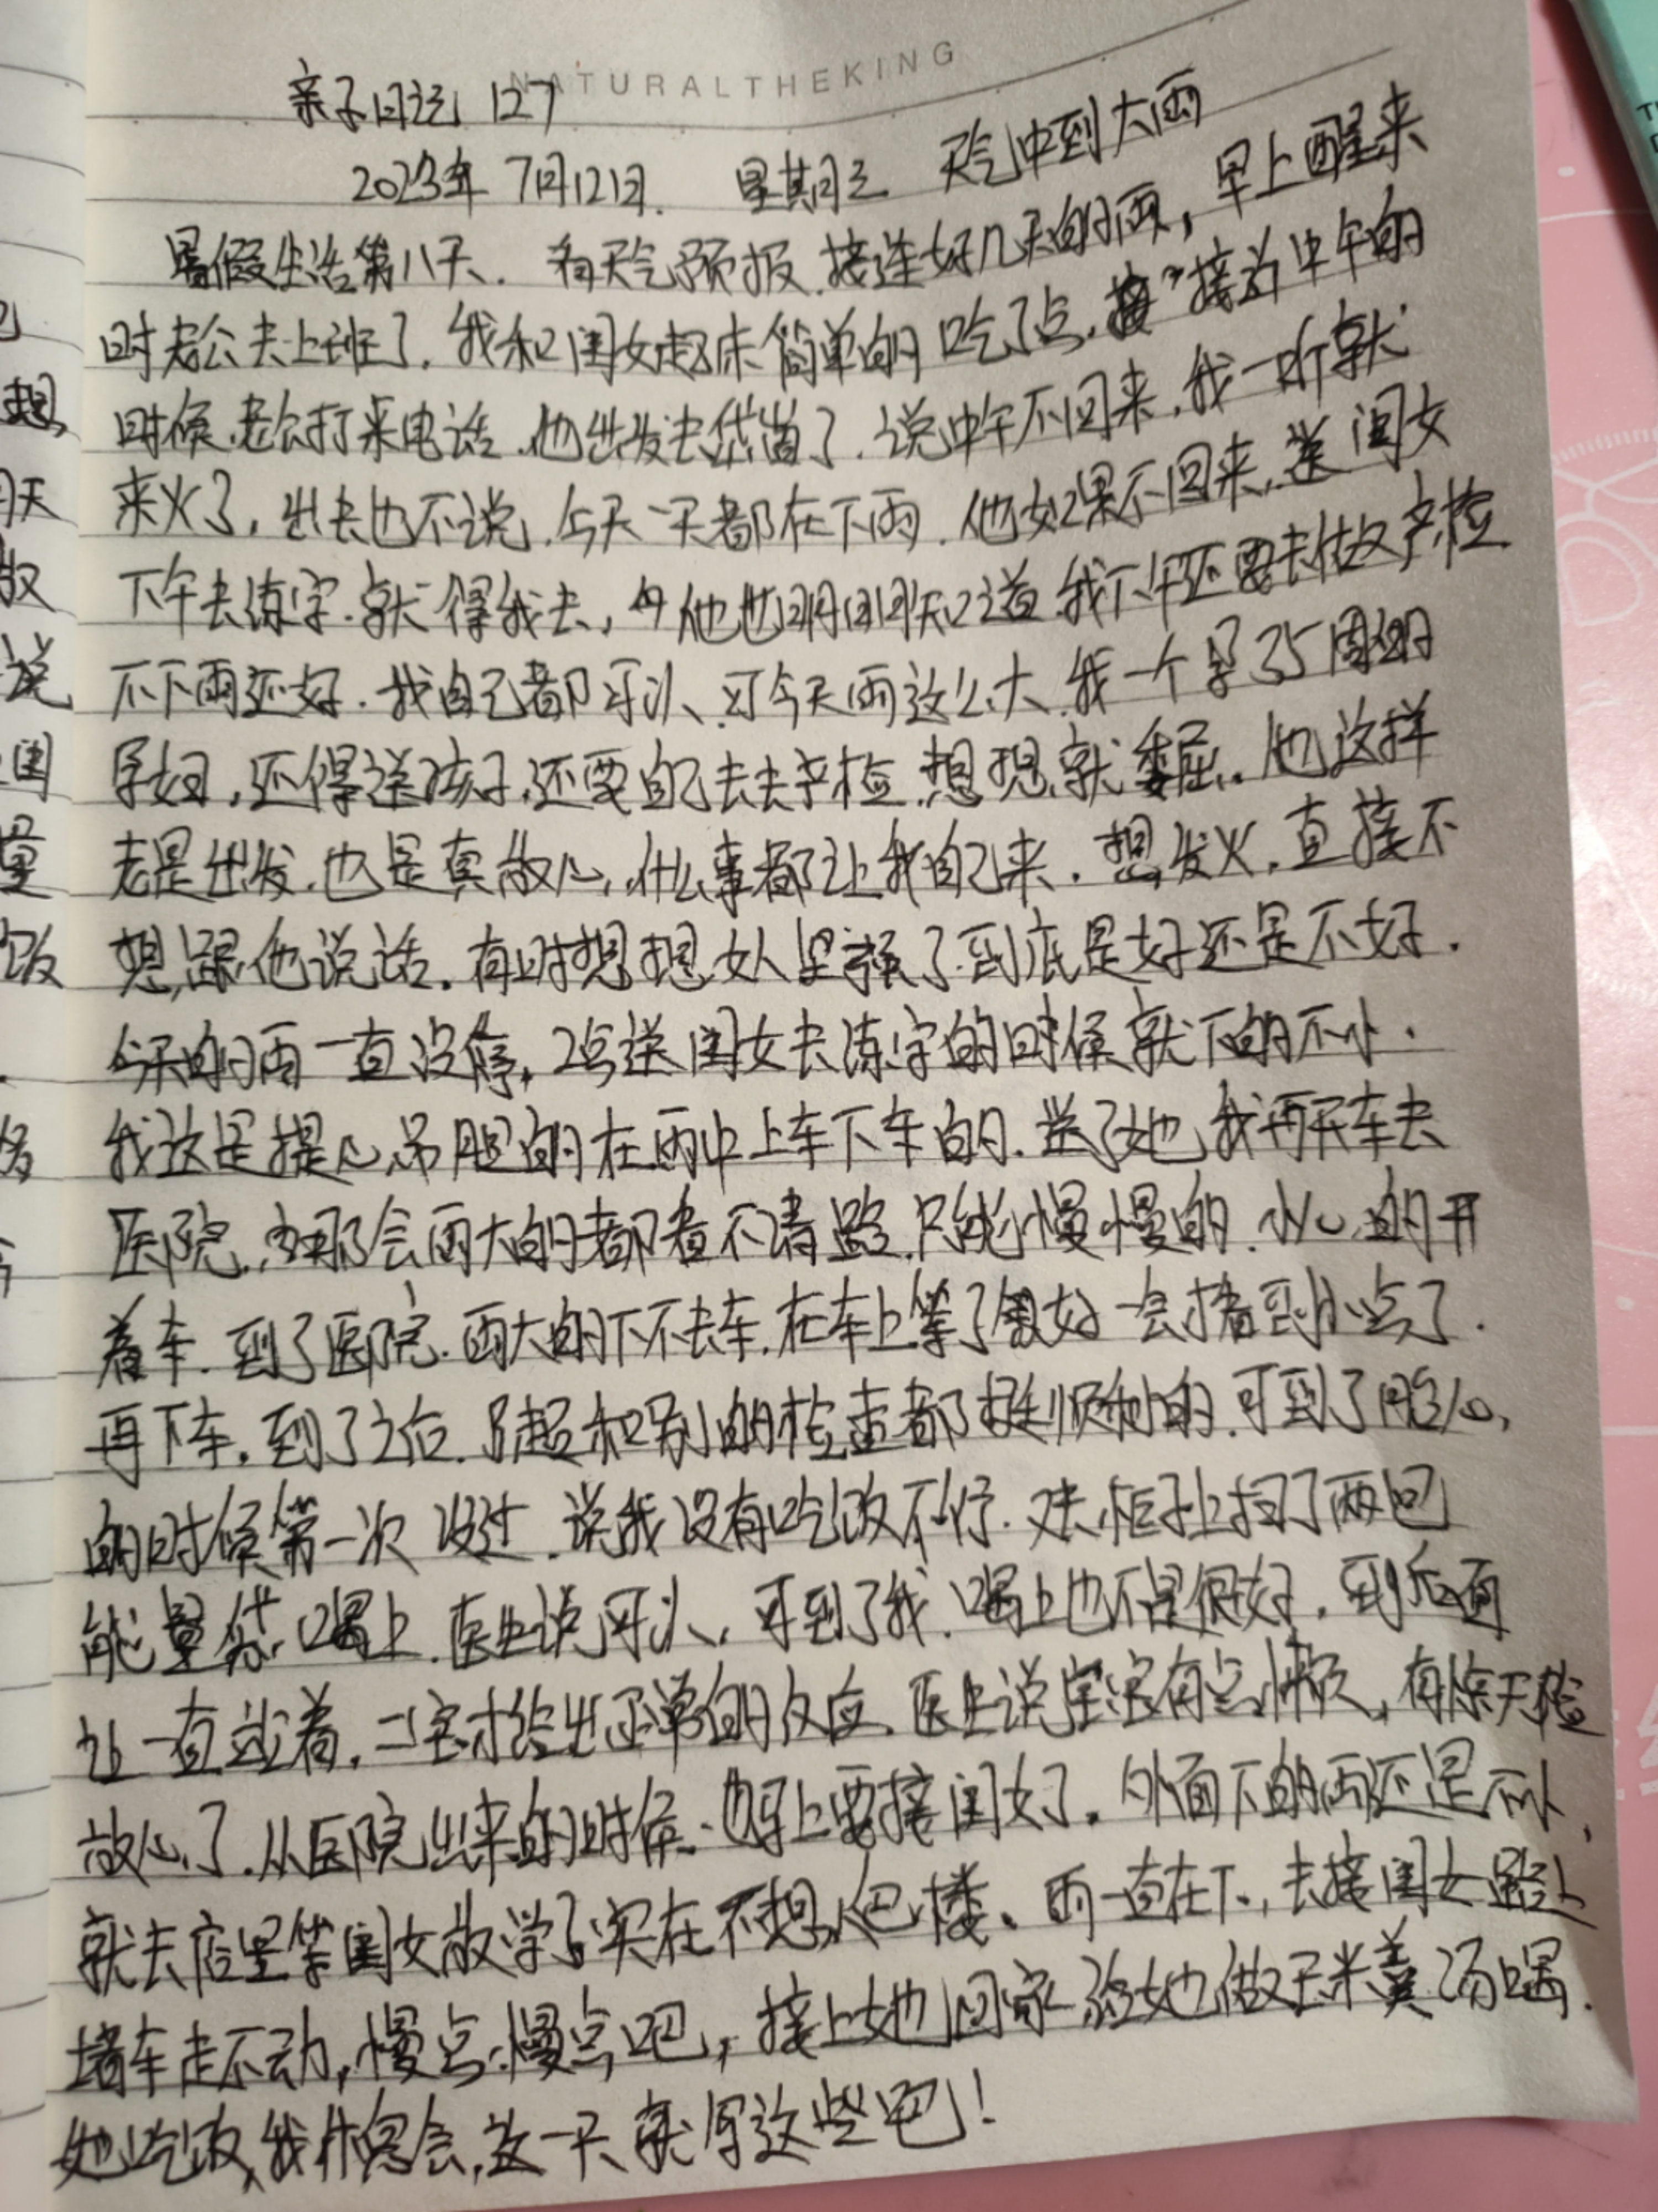 NATURALTHEKING
亲子日记 127
2023年 7月12日. 星期三 天气中到大雨
暑假生活第八天. 看天气预报.接连好几天的雨,早上醒来
时老公去上班了.我和闺女起床简单的吃了点.接着中午的
时候.老公打来电话.他出发去岱崮了.说中午不回来.我一听就
来火了,出去也不说.今天一天都在下雨.他如果不回来.送闺女
下午去练字.就得我去,他也明明知道我下午还要去做产检
不下雨还好.我自己都可以、可今天雨这么大.我一个孕35周的
孕妇,还得送孩子,还要自己去去产检.想想就委屈.他这样
老是出发.也是真放心,什么事都让我自己来.想发火.直接不
想跟他说话.有时想想女人坚强了.到底是好还是不好.
今天的雨一直没停,2点送闺女去练字的时候就下的不小.
我这是提心吊胆的在雨中上车下车的.送了她我再开车去
医院,那会雨大的都看不清路.只能慢慢的.小心的开
着车.到了医院.雨大的下不去车.在车上等了好一会看到小点了.
再下车.到了之后.B超和别的检查都挺顺利的.可到了胎心,
的时候第一次没过.说我没有吃饭不行.又去柜子上扫了两包
能量袋.喝上.医生说可以,可到了我.喝上也不是很好.到后面
一直站着,二宝才给出正常的反应.医生说宝宝有点懒,
放心了.从医院出来的时候.马上要接闺女了.外面下的雨还是不小.
就去店里等闺女放学了.实在不想爬楼.雨一直在下,去接闺女路上
堵车走不动,慢点慢点吧,接上她回家给她做玉米羹汤喝.
她吃饭,我休息会,这一天就写这些吧!
想
天
说
闺
量
饭